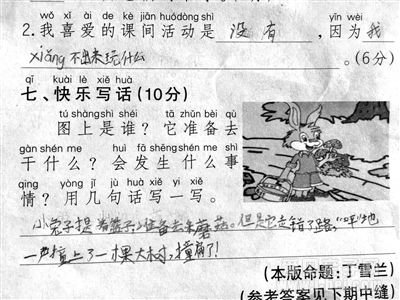 wǒ xǐ ài de kè jiān huódòng shì yīn wèi
2.我喜爱的课间活动是 没有 ,因为我
xiǎng不出来玩什么 。(6分)
qī kuài lè xiě huà
七、快乐写话(10分)
tú shàng shì shéi tā zhǔn bèi qù
图上是谁?它准备去
gàn shén me huì fā shēng shén me shì
干什么?会发生什么事
qíng yòng jǐ jù huà xiě yi xiě
情?用几句话写一写。
小兔子提着篮子准备去采蘑菇。但是它走错了路,“呯”地
一声撞上了一棵大树,撞扁了!
(本版命题:丁雪兰)
(参考答案见下期中缝)